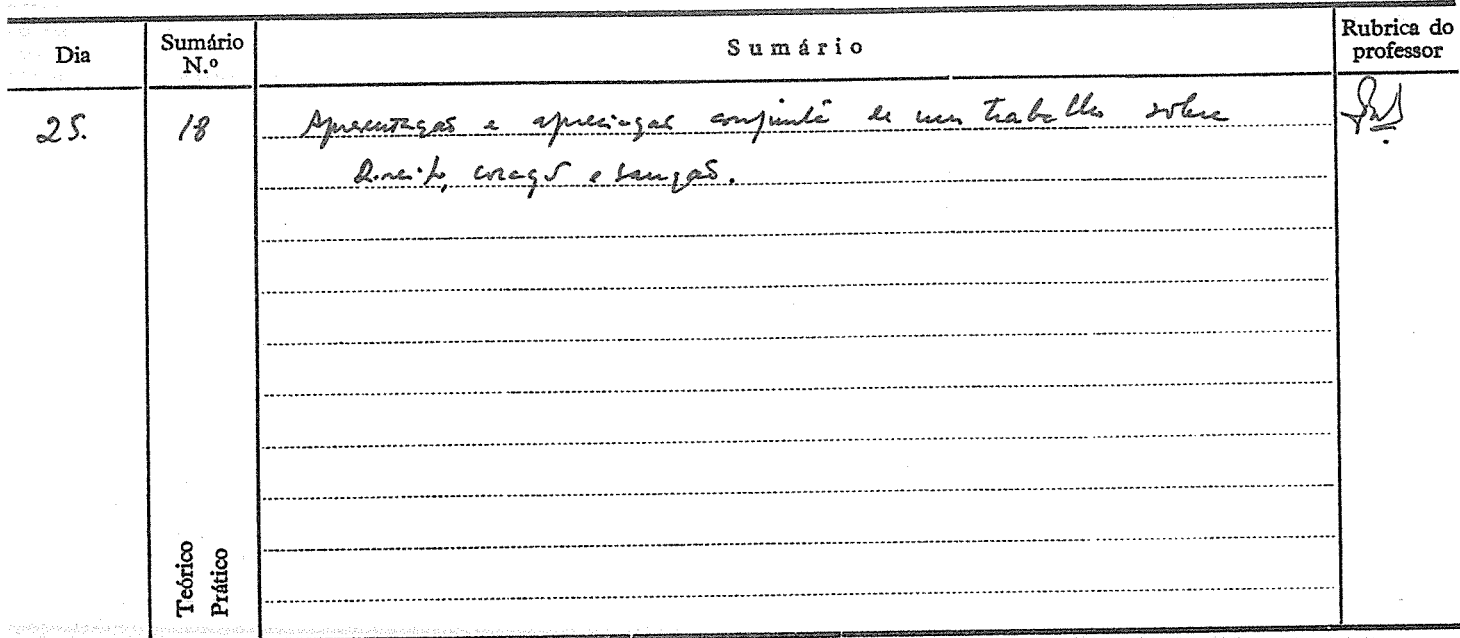 Dia
Sumário N.º
Sumário
Rubrica do professor
25.
18
Apresentação e apreciação conjunta de um trabalho sobre
Direito, coação e sanção.
Teórico
Prático